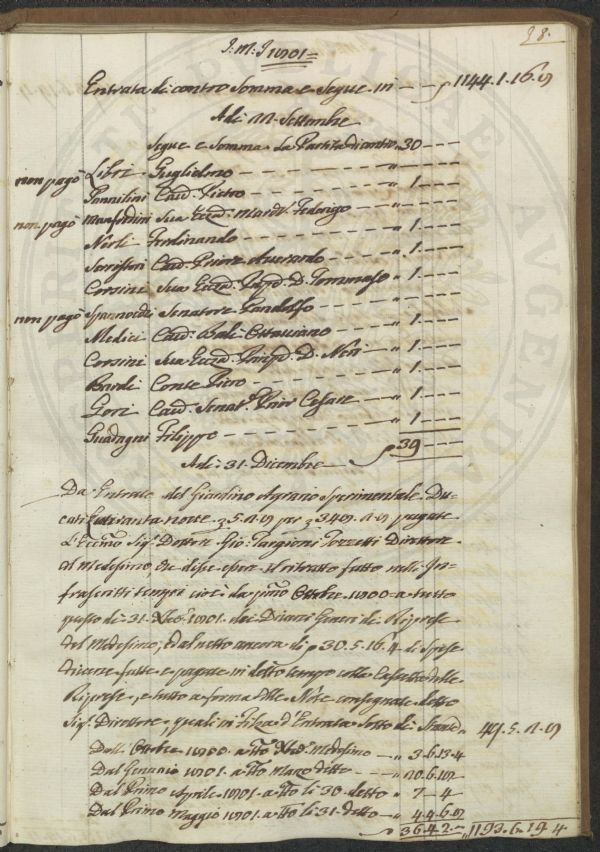 28.
J: M: J 1791=
Entrata di contro Somma e Segue in — — ƿ 1144.1.16.8
A di 11 Settembre
Segue e Somma la Partita di contro 30 — — —
non pagò Libri Guglielmo — — — — — —
Pannilini Cav.e Pietro — — — " 1 — — —
non pagò Manfredini Sua Ecc.za March. Federigo — — — —
Nerli Ferdinando — — — — " 1 — — —
Serristori Cav.e Priore Averardo — — " 1 — — —
Corsini Sua Ecc.za D. Tommaso " 1 — — —
non pagò Senatore Gandolfo — — — —
Medici Cav.e Balì Ottaviano — — — " 1 — — —
Corsini Sua Ecc.za D. Neri — " 1 — — —
Bardi Conte Piero — — — — " 1 — — —
Gori Cav.e Senat.e Cesare — — " 1 — — —
Guadagni Filippo — — — — " 1 — — —
A di 31. Dicembre — ƿ 39 — — —
Da Entrate del Giardino Agrario Sperimentale Du-
cati pagate
L'Ecc.mo Sig.r Dottore Gio: Targioni Tozzetti Direttore
al Medesimo, che disse essere il ritratto fatto nelli In-
frascritti tempi cioè da primo Ottobre a tutto
questo di 31. Xbre dei Diversi Generi di Riprese
del Medesimo, e dal netto ancora di ƿ 30.5.16.4 di Spese
diverse fatte e pagate in detto tempo colla Cassetta delle
Riprese, e tutto a forma delle Note consegnate detto
Sig.r Direttore, quali in Filza d'Entrata Sotto di
Dall' Ottobre a tto Xbre Medesimo — " 3.6.13.4
Dal Gennaio a tto Marzo detto — —
Dal Primo Aprile a tto li 30 detto " 7 — 4
Dal Primo Maggio a tto li 31 detto — " 4.4.6.8
ƿ 36.4.2.— " 1193.6.19.4